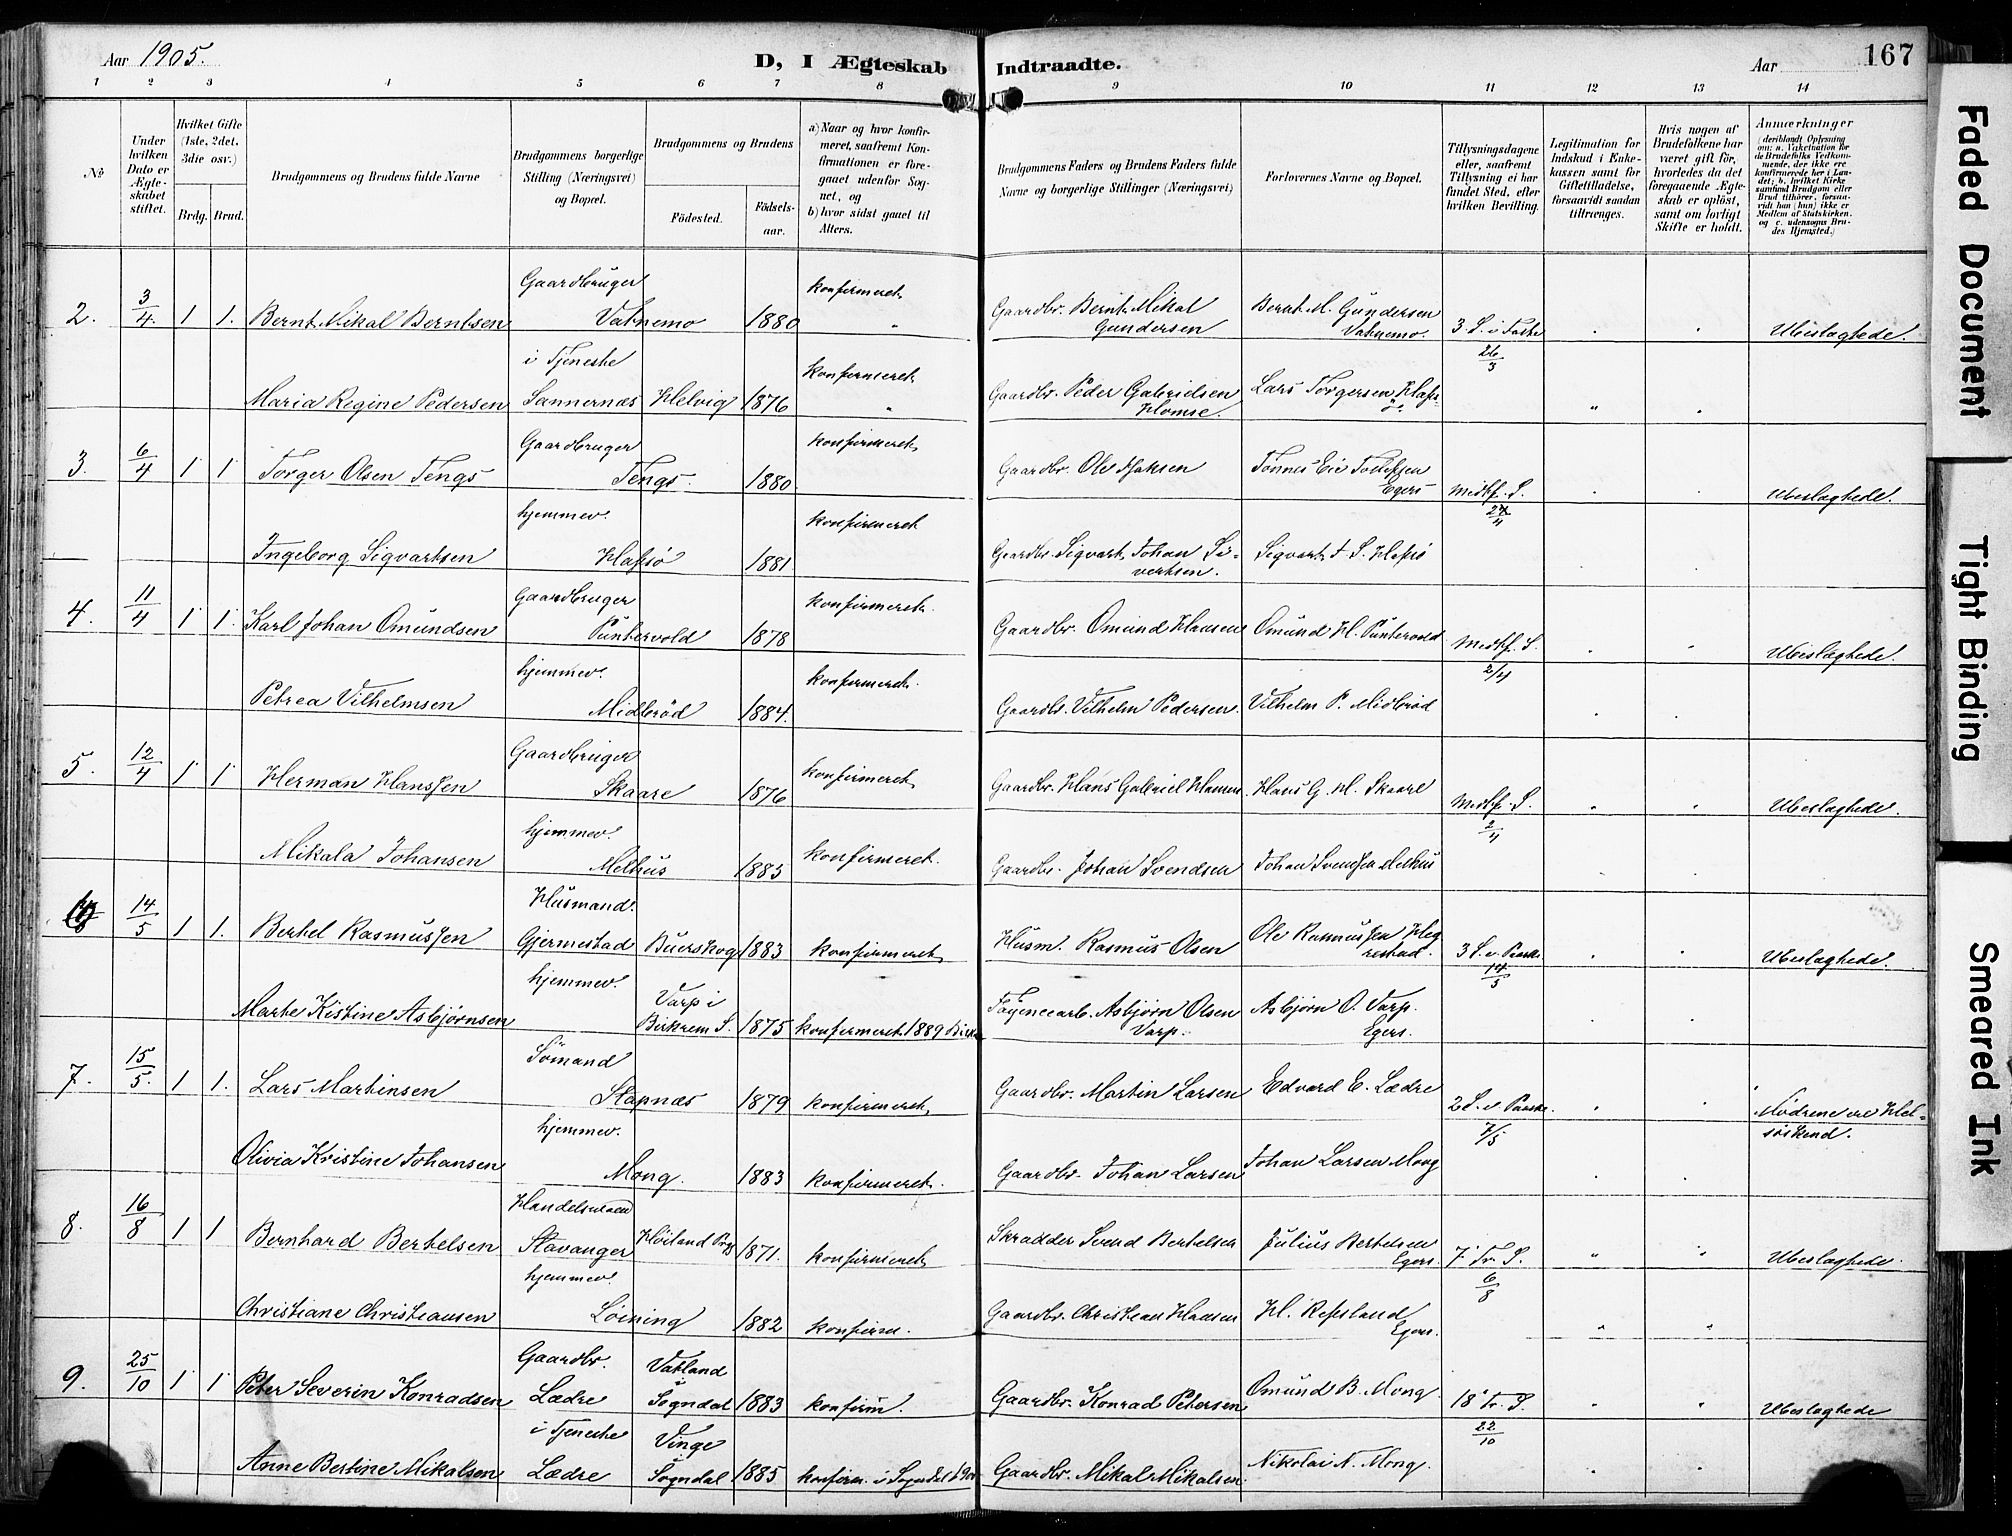 Aar 1905.
D, I Ægteskab Indtraadte.
Aar 167
1 2 3 4 5 6 7 8 9 10 11 12 13 14
№
Under hvilken Dato er Ægteskabet stiftet.
Hvilket Gifte (1ste, 2det, 3die osv.)
Brdg. Brud.
Brudgommens og Brudens fulde Navne
Brudgommens borgerlige Stilling (Næringsvei) og Bopæl.
Brudgommens og Brudens
Fødested.
Fødselsaar.
a) Naar og hvor konfirmeret, saafremt Konfirmationen er foregaaet udenfor Sognet, og
b) hvor sidst gaaet til Alters.
Brudgommens Faders og Brudens Faders fulde Navne og borgerlige Stillinger (Næringsvei)
Forlovernes Navne og Bopæl.
Tillysningsdagene eller, saafremt Tillysning ei har fundet Sted, efter hvilken Bevilling.
Legitimation for Indskud i Enkekassen samt for Giftetilladelse, forsaavidt saadan tiltrænges.
Hvis nogen af Brudefolkene har været gift før, hvorledes da det foregaaende Ægteskab er opløst, samt om lovligt Skifte er holdt.
Anmærkninger
(deriblandt Oplysning om: a. Vakcination for de Brudefolks Vedkommende, der ikke ere konfirmerede her i Landet; b. hvilket Kirkesamfund Brudgom eller Brud tilhører, forsaavidt han (hun) ikke er Medlem af Statskirken. og c. udensogns Brudes Hjemsted.)
2. 3/4 1 1. Bernt Mikal Berntsen Gaardbruger Vatnemo 1880 konfirmeret " Gaardbr. Bernt Mikal Gundersen Bernt M. Gundersen Vatnemo. 3. S. i Faste 26/3 Ubeslægtede.
Maria Regine Pedersen i Tjeneste Sannernæs Helvig 1876 konfirmeret " Gaardbr. Peder Gabrielsen Homse. Lars Torgersen Hafsö. "
3. 6/4 1 1 Torger Olsen Tengs Gaardbruger Tengs 1880 konfirmeret Gaardbr. Ole Tönnes Eie Egers Midtf. S. Ubeslægtede.
Ingeborg Sigvartsen hjemmev. Hafsö 1881 konfirmeret Gaardbr. Sigvart Johan Sivertsen. Sigvart J. S. Hafsö
4. 11/4 1 1. Karl Johan Omundsen Gaardbruger Puntervold 1878 konfirmeret. Gaardbr. Omund Hansen Omund H. Puntervold Midtf. S. 2/4 Ubeslægtede.
Petrea Vilhelmsen hjemmev. Midbröd 1884. konfirmeret. Gaardbr. Vilhelm Pedersen. Vilhelm P. Midbröd
5. 12/4 1 1 Herman Hanssen Gaardbruger Skaare 1876 konfirmeret Gaardbr. Hans Gabriel Hansen Hans G. H. Skaare Midtf. S. 2/4 " Ubeslægtede.
Mikala Johansen hjemmev. Melhus 1883 konfirmeret. Gaardbr. Johan Svendsen Johan Svendsen Melhus
6 14/5 1 1. Berthel Rasmussen Husmand. Gjermestad Buerskog 1883 konfirmeret Husm. Rasmus Olsen Ole Rasmussen Hegrestad. 3 S. e. Paaske 14/5 Ubeslægtede.
Marte Kistine Asbjørnsen hjemmev. Varp i Birkrem S. 1875 konfirmeret 1889 Fayencearb. Asbjørn Olsen Varp. Asbjørn O. Varp. Egers.
7. 15/5. 1 1. Lars Martinsen Sömand Stapnæs 1879 konfirmeret Gaardbr. Martin Larsen Edvard E. Lædre 2 S. e. Paaske. 7/5 Mödrene ere Helsöskend.
Olivia Kristine Johansen hjemmev. Mong. 1883 konfirmeret. Gaardbr. Johan Larsen Johan Larsen Mong
8. 16/8 1 1 Bernhard Berthelsen Handelsmand Stavanger Höiland Prg 1871. konfirmeret Skrædder Svend Berthelsen Julius Berthelsen Egers. 7. Tr. S. 6/8 " Ubeslægtede.
Christiane Christiansen hjemmev. Löining 1882 konfirm. Gaardbr. Christian Hansen H. Refsland Egers. "
9. 25/10 1 1 Peter Severin Konradsen Gaardbr. Lædre Vatland Sogndal 1883 konfirm. Gaardbr. Konrad Petersen Omund B. Mong 18 Tr. S. 22/10 Ubeslægtede
Anne Bertine Mikalsen i Tjeneste Lædre Vinge Sogndal 1885 konfirm. i Sogndal Gaardbr. Mikal Mikalsen Nikolai N. Mong.
Faded Document
Tight Binding
Smeared Ink